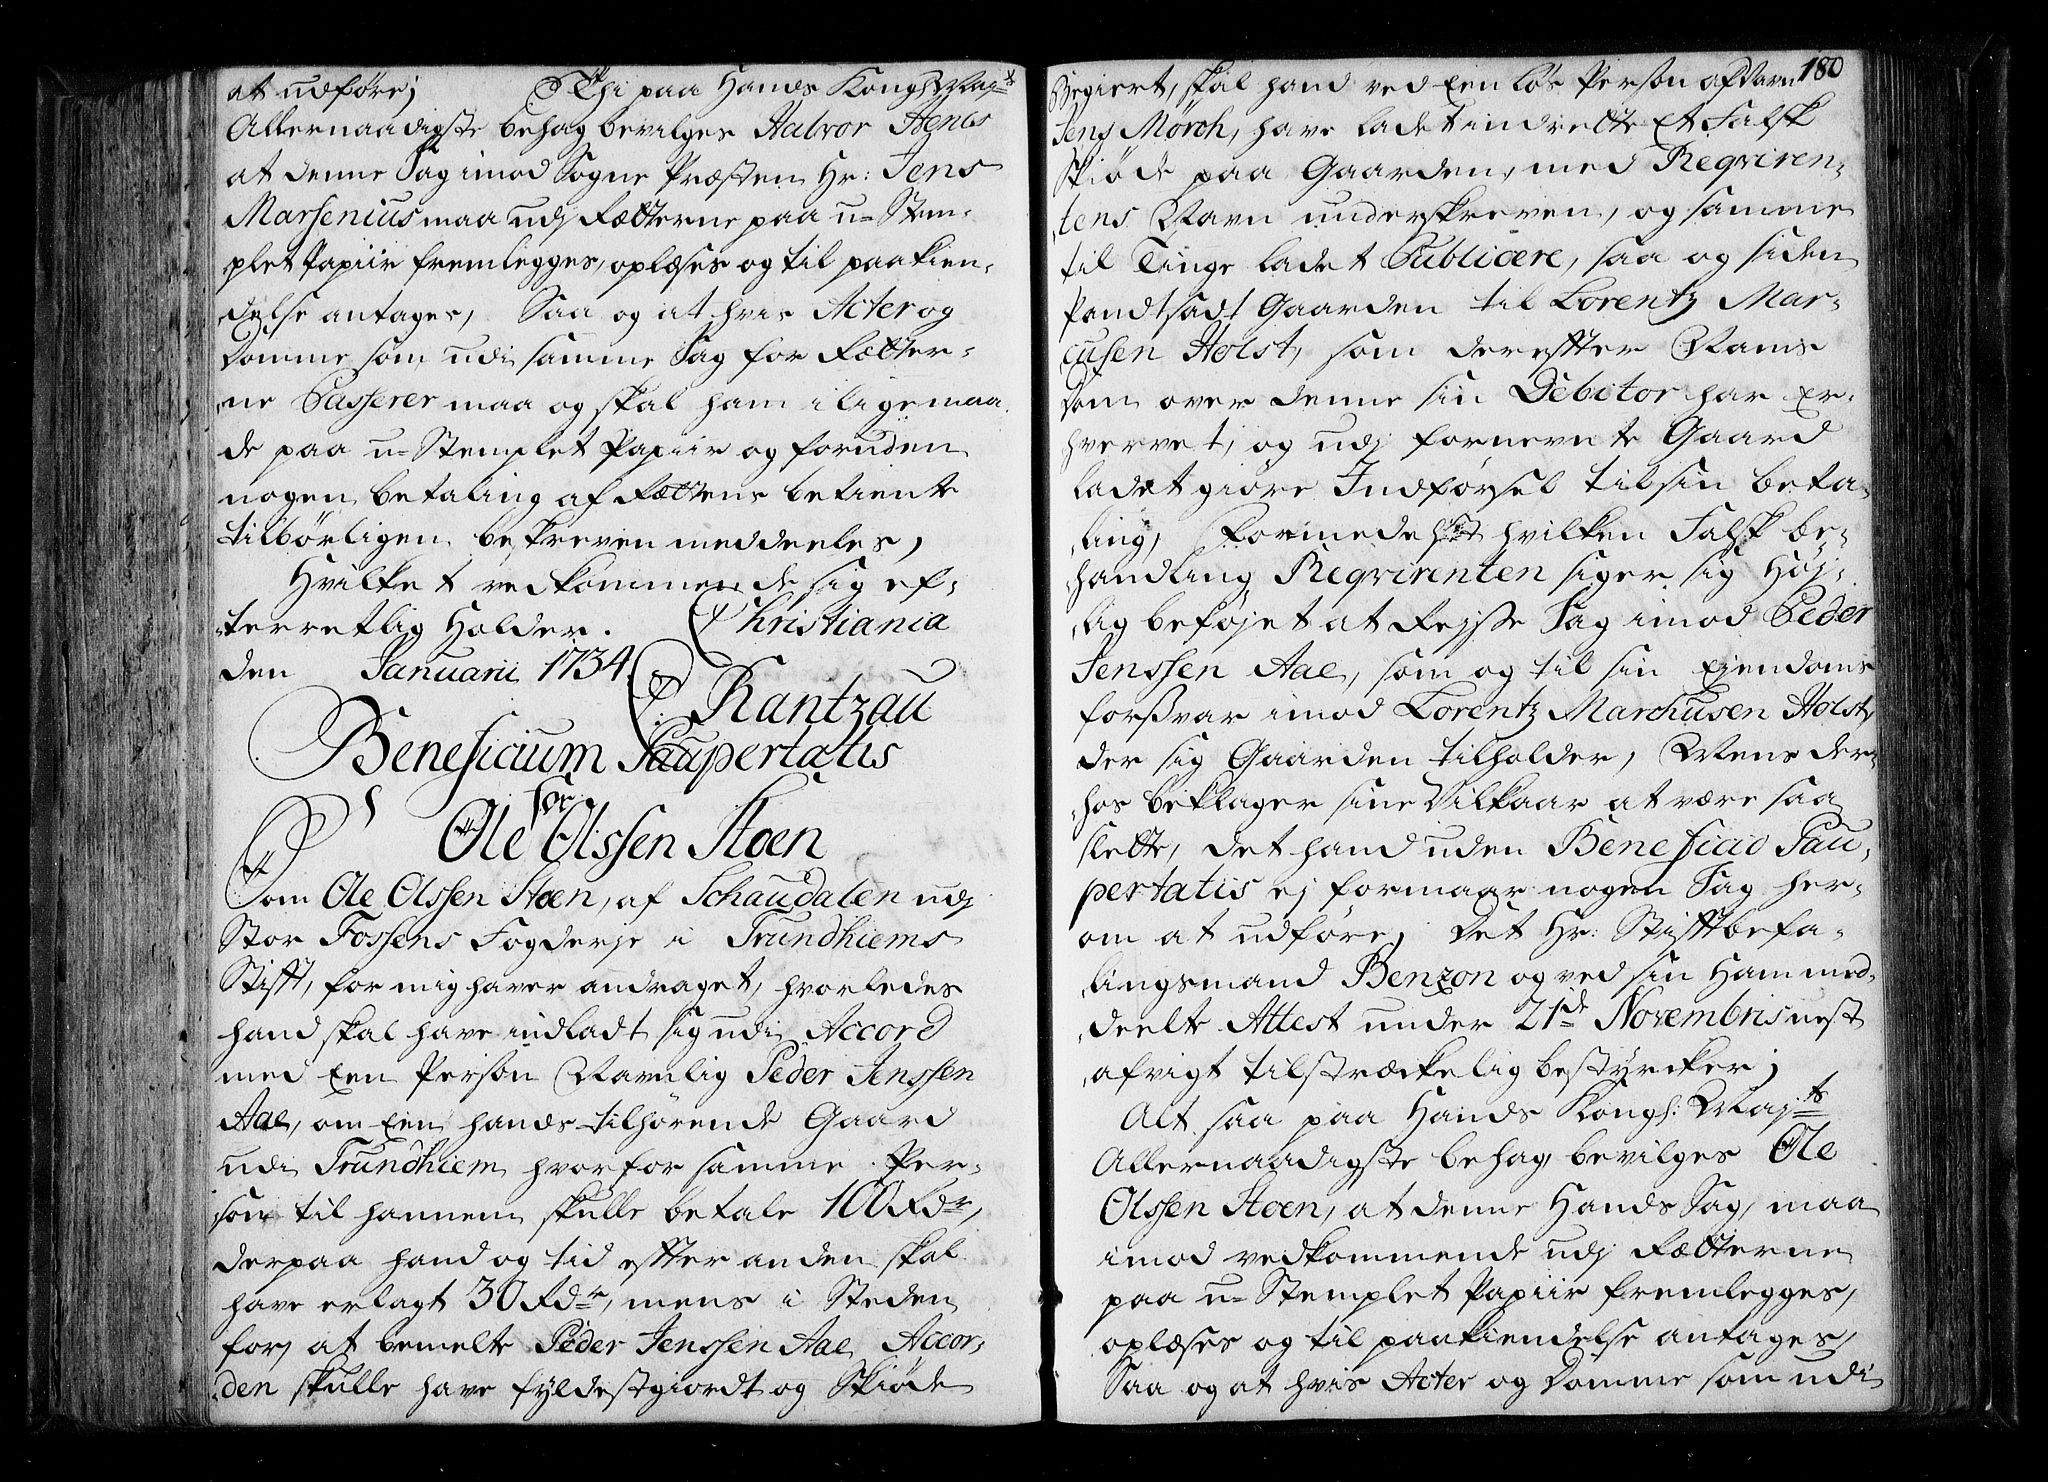 at udføre; Thi paa Hands Kongl: May:ts
Allernaadigste behag bevilges Halvor Stenes
at denne Sag imod Sogne Præsten Hr: Jens
Marsenius maa udj Rætterne paa u-Stem-
plet Papiir fremlegges, oplæses og til paakien-
delse antages, Saa og at hvis Acter og
Domme som udi samme Sag for Rætter-
ne Passerer maa og skal ham i lige maa-
de paa u-Stemplet Papiir og foruden
nogen betaling af Rættens betiente
tilbørligen beskreven meddeeles,
Hvilket vedkommende sig ef-
terretlig Holder. Christiania
den Januarii 1734.
C: Rantzau
Beneficium Paupertatis
for
Ole Olssen Stoen
Som Ole Olssen Stoen, af Schaudalen udj
Stor Fossens Fogderje i Trundhiems
Stifft, for mig haver andraget, hvorledes
hand skal have indladt sig udi Accord
med Een Person Navnlig Peder Jenssen
Aae, om Een hands tilhørende Gaard
udi Trundhiem hvorfor samme Per-
son til hannem skulle betale 100 Rdr,
derpaa hand og tid effter anden skal
have erlagt 30 Rdr, mens i Steden
for, at bemelte Peder Jenssen Aae Accor-
den skulle have fyldestgiordt og Skiøde
180
Begiert, skal hand ved Een løs Person af Navn
Jens Mörch, have ladet indrette Et Falsk
Skiøde paa Gaarden, med Reqviren-
tens Navn underskreven, og samme
til Tinge ladet Publicere, saa og siden
Pandtsadt Gaarden til Lorentz Mar-
cusen Holst, som dereffter Nams
Dom over denne sin Debitor har Er-
hvervet, og udj fornevnte Gaard
ladet giøre Indførsel til sin beta-
ling, Formedelst hvilken Falsk be-
handling Reqvirenten siger sig Høj-
lig beføjet at Rejsse Sag imod Peder
Jenssen Aae, som og til sin Ejendoms
forsvar imod Lorentz Marchusen Holst,
der sig Gaarden tilholder, Mens der-
hos beklager sine Vilkaar at være saa
slette, det hand uden Beneficio Pau-
pertatis ej formaar nogen Sag her-
om at udføre; Det Hr: Stifftbefa-
lingsmand Benzon og ved sin Ham med-
deelte Attest under 21de Novembris nest
afvigt tilstræckelig bestyrcker;
Alt saa paa Hands Kongl: May:ts
Allernaadigste behag bevilges Ole
Olssen Stoen, at denne Hands Sag, maa
imod vedkommende udj Rætterne
paa u-Stemplet Papiir fremlegges,
oplæses og til paakiendelse antages,
Saa og at hvis Acter og Domme som udi